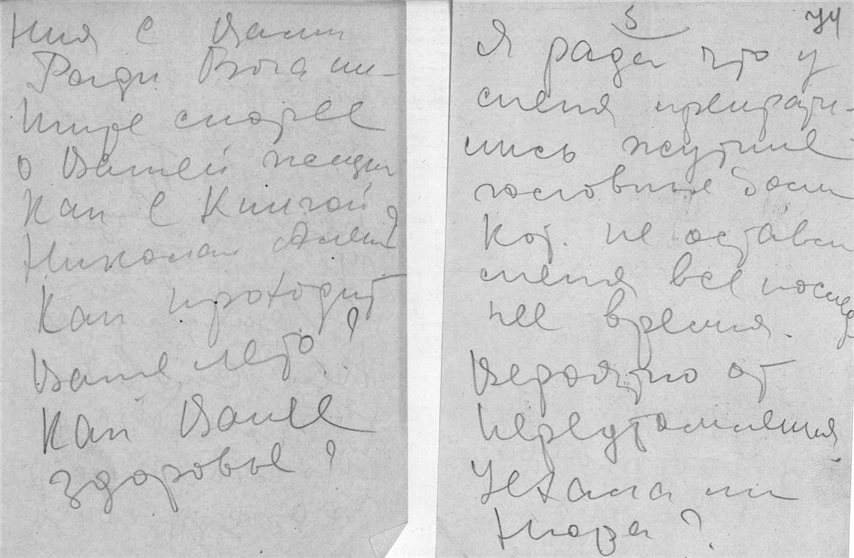 ния с Вами
Ради Бога пи-
шите скорее
о Вашей жизни
Как с Книгой?
Николай Алек
Как проходит
Ваше лето?
Как Ваше
здоровье?
5
74
Я рада что у
меня прекрати-
лись жуткие
головные боли
кот. не оставл
меня все послед
нее время.
Вероятно от
переутомления
Уехала ли
Нюра?